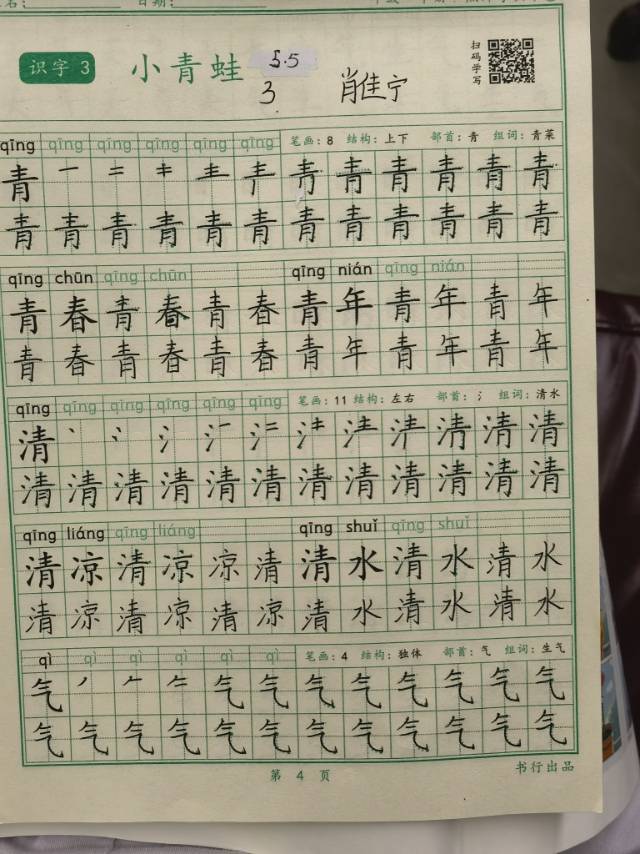 日期：
识字 3 小青蛙 5.5
3 肖佳宁
扫码学写
qīng qīng qīng qīng qīng qīng 笔画：8 结构：上下 部首：青 组词：青菜
青 青 青 青 青 青 青
青 青 青 青 青 青 青 青 青 青 青 青
qīng chūn qīng chūn qīng nián qīng nián
青 春 青 春 青 春 青 年 青 年 青 年
青 春 青 春 青 春 青 年 青 年 青 年
qīng qīng qīng qīng qīng qīng 笔画：11 结构：左右 部首：氵 组词：清水
清 丶 冫 氵 清 清 清
清 清 清 清 清 清 清 清 清 清 清 清
qīng liáng qīng liáng qīng shuǐ qīng shuǐ
清 凉 清 凉 凉 清 清 水 清 水 清 水
清 凉 清 凉 清 凉 清 水 清 水 清 水
qì qì qì qì qì qì 笔画：4 结构：独体 部首：气 组词：生气
气 丿 𠂉 气 气 气 气 气 气 气 气
气 气 气 气 气 气 气 气 气 气 气 气
第 4 页 书行出品